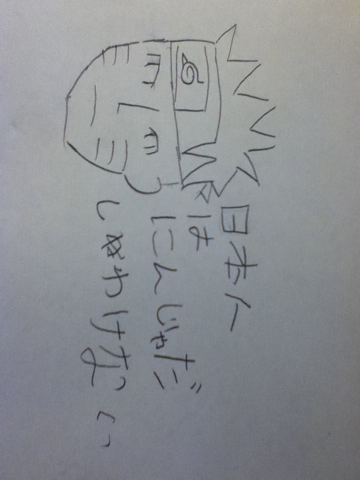 日本人
は
にんじゃだ
しぬわけない